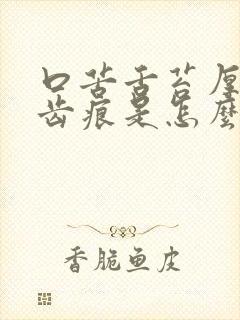 口苦舌苔厚
齿痕是怎麼
香脆鱼皮